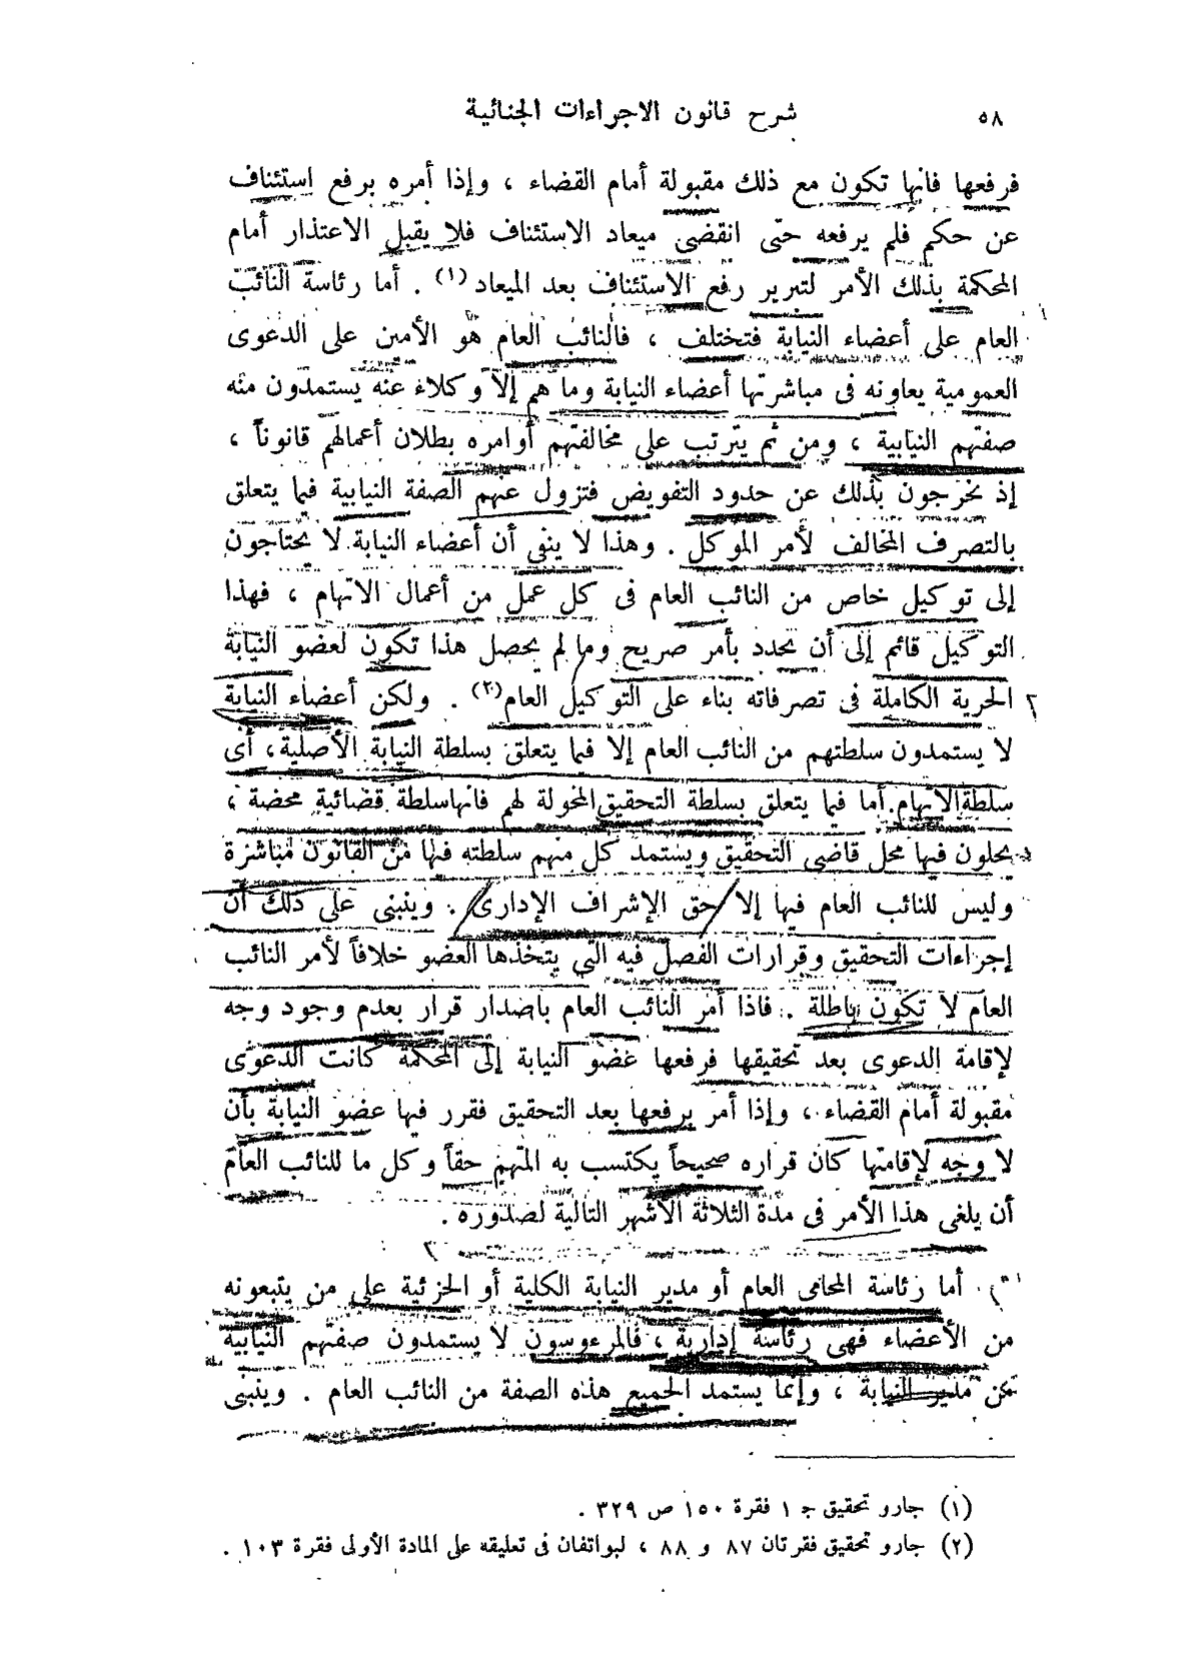 ٥٨
شرح قانون الاجراءات الجنائية
فرفعها فانها تكون مع ذلك مقبولة أمام القضاء ، وإذا أمره برفع استئناف
عن حكم فلم يرفعه حتى انقضى ميعاد الاستئناف فلا يقبل الاعتذار أمام
المحكمة بذلك الأمر لتبرير رفع الاستئناف بعد الميعاد (١) . أما رئاسة النائب
العام على أعضاء النيابة فتختلف ، فالنائب العام هو الأمين على الدعوى
العمومية يعاونه فى مباشرتها أعضاء النيابة وما هم إلا وكلاء عنه يستمدون منه
صفتهم النيابية ، ومن ثم يترتب على مخالفتهم أوامره بطلان أعمالهم قانوناً ،
إذ يخرجون بذلك عن حدود التفويض فتزول عنهم الصفة النيابية فيما يتعلق
بالتصرف المخالف لأمر الموكل . وهذا لا ينفى أن أعضاء النيابة لا يحتاجون
إلى توكيل خاص من النائب العام فى كل عمل من أعمال الاتهام ، فهذا
التوكيل قائم إلى أن يحدد بأمر صريح وما لم يحصل هذا تكون لعضو النيابة
الحرية الكاملة فى تصرفاته بناء على التوكيل العام (٢) . ولكن أعضاء النيابة
لا يستمدون سلطتهم من النائب العام إلا فيما يتعلق بسلطة النيابة الأصلية ، أى
سلطة الاتهام . أما فيما يتعلق بسلطة التحقيق المخولة لهم فانها سلطة قضائية محضة ،
يحلون فيها محل قاضى التحقيق ويستمد كل منهم سلطته فيها من القانون مباشرة
وليس للنائب العام فيها إلا حق الإشراف الإدارى . وينبنى على ذلك أن
إجراءات التحقيق وقرارات الفصل فيه التى يتخذها العضو خلافاً لأمر النائب
العام لا تكون باطلة . فاذا أمر النائب العام باصدار قرار بعدم وجود وجه
لإقامة الدعوى بعد تحقيقها فرفعها عضو النيابة إلى المحكمة كانت الدعوى
مقبولة أمام القضاء ، وإذا أمر برفعها بعد التحقيق فقرر فيها عضو النيابة بأن
لا وجه لإقامتها كان قراره صحيحاً يكتسب به المتهم حقاً وكل ما للنائب العام
أن يلغى هذا الأمر فى مدة الثلاثة الأشهر التالية لصدوره .
أما رئاسة المحامى العام أو مدير النيابة الكلية أو الجزئية على من يتبعونه
من الأعضاء فهى رئاسة إدارية ، فالمرءوسون لا يستمدون صفتهم النيابية
من مدير النيابة ، وإنما يستمد الجميع هذه الصفة من النائب العام . وينبنى
(١) جارو تحقيق ج ١ فقرة ١٥٠ ص ٣٢٩ .
(٢) جارو تحقيق فقرتان ٨٧ و ٨٨ ، لبواتفان فى تعليقه على المادة الأولى فقرة ١٠٣ .